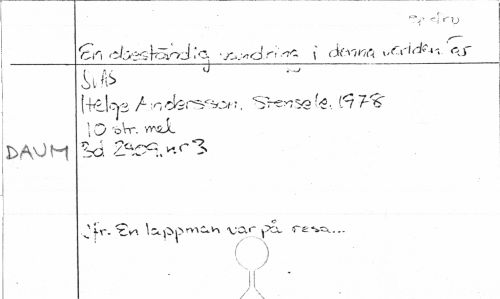 En obeständig vandring i denna världen är
SVAS
Helge Andersson, Stensele, 1978
10 str. mel
DAUM Bd 2909, nr 3
Jfr. En lappman var på resa...